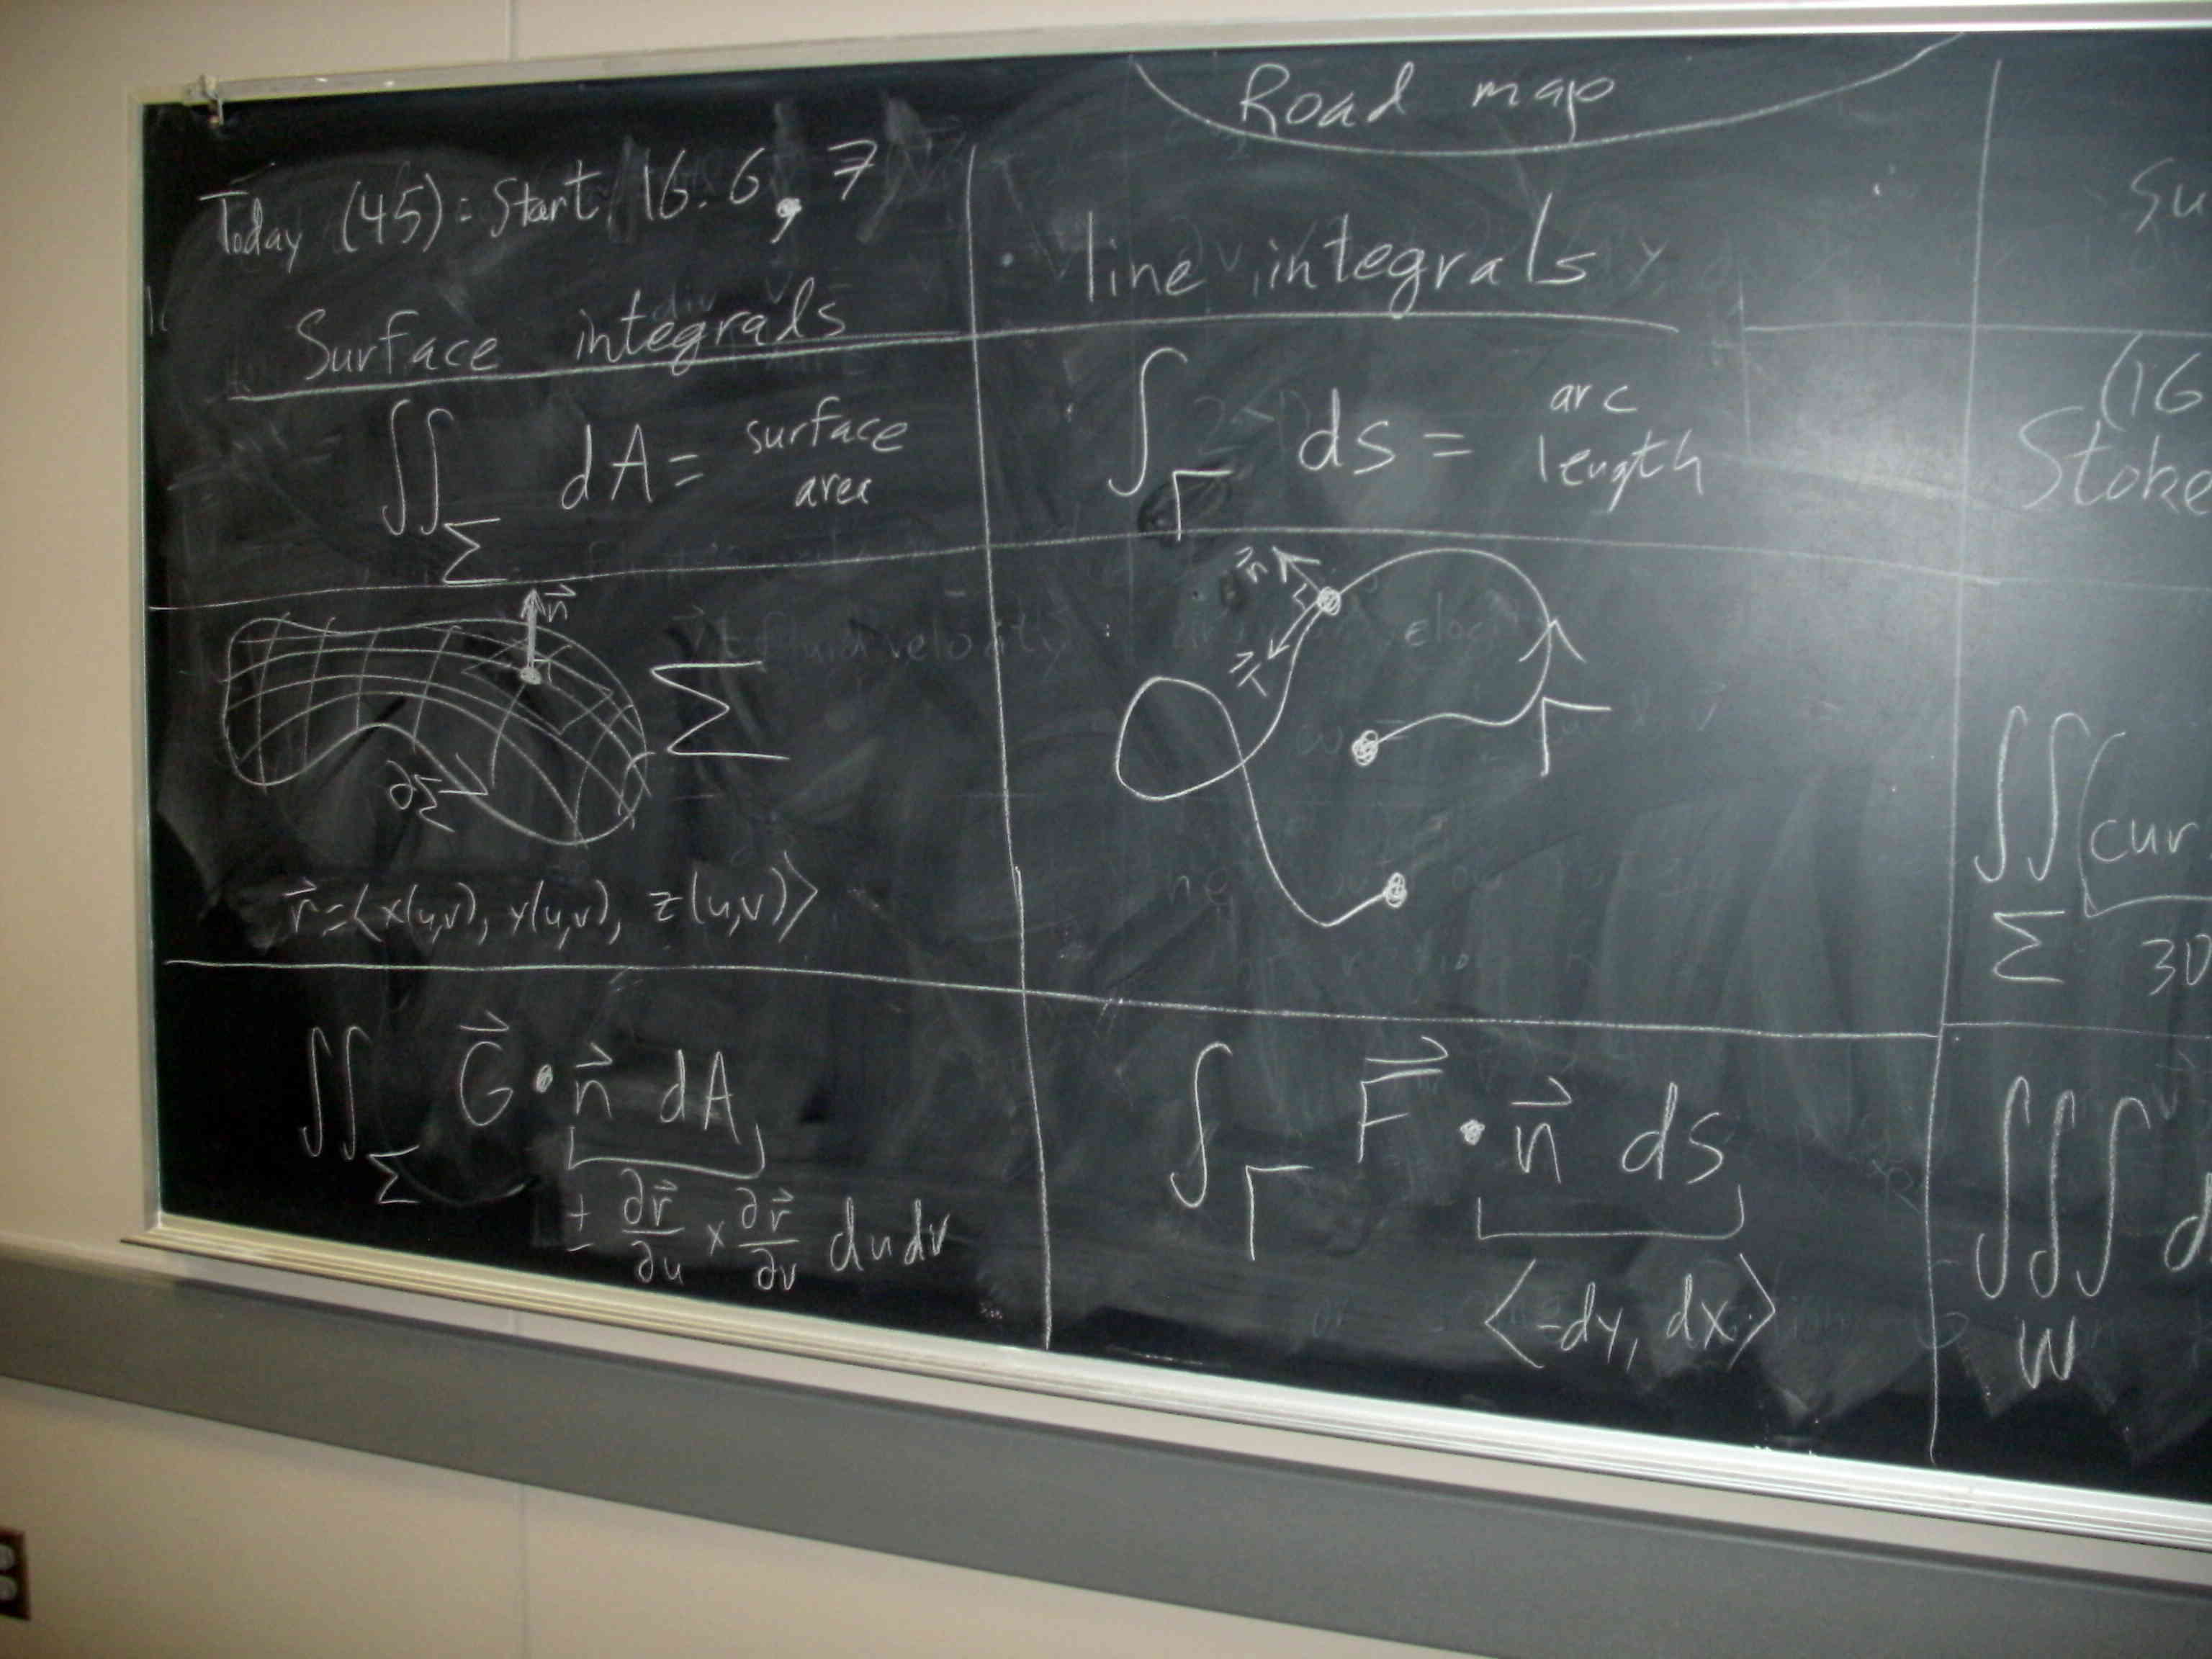 Road map
Today (45): Start 16.6, 7
Surface integrals
∬_Σ dA = surface area
n⃗
Σ
∂Σ
r⃗ = ⟨x(u,v), y(u,v), z(u,v)⟩
∬_Σ G⃗ • n⃗ dA
± ∂r⃗/∂u × ∂r⃗/∂v du dv
line integrals
∫_Γ ds = arc length
n⃗
T⃗
Γ
∫_Γ F⃗ • n⃗ ds
⟨-dy, dx⟩
Su
(16
Stoke
∬_Σ (cur
3D
∭_W d